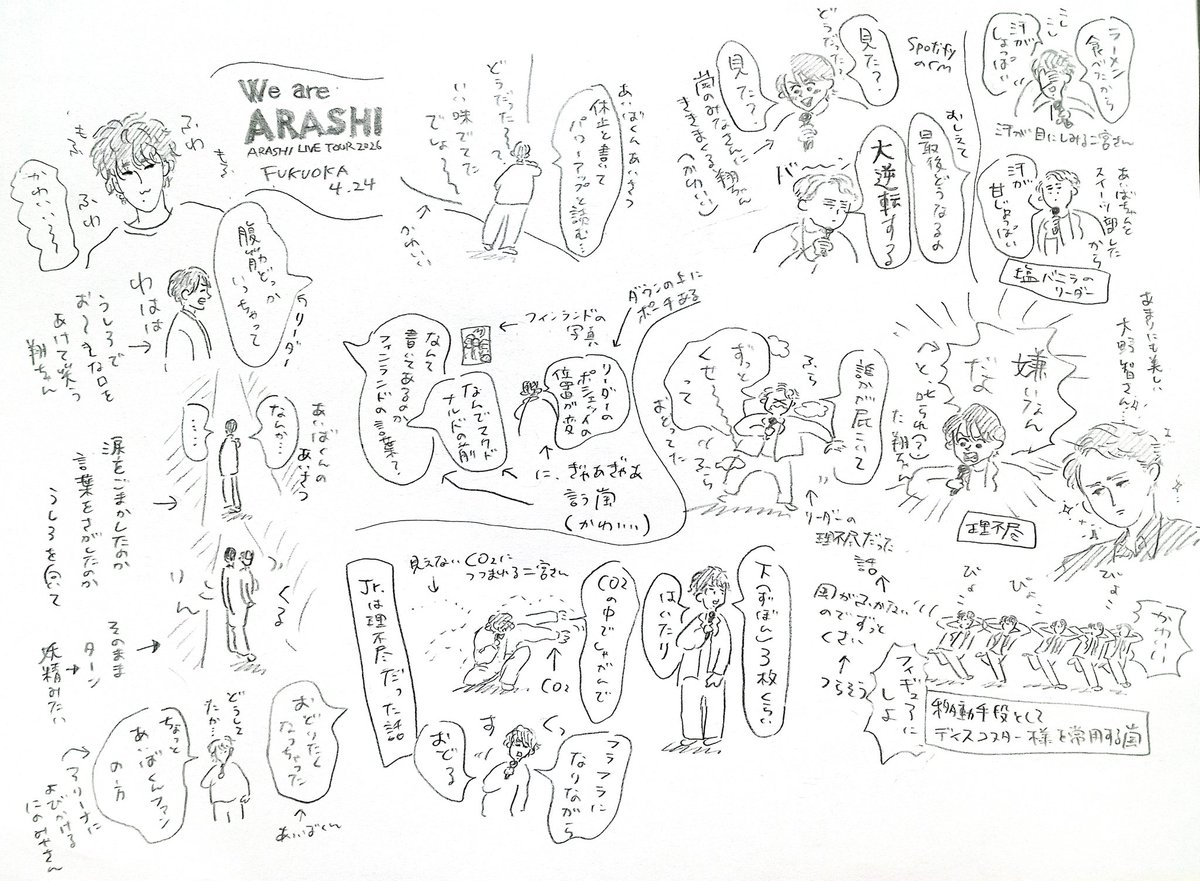 We are
ARASHI
ARASHI LIVE TOUR 2026
FUKUOKA
4.24
ふわ
もふ
ふわ
もふ
かわいい〜〜
腹筋どっか
いっちゃって
リーダー
わはは
うしろで
お〜きな口を
あけて笑う
翔ちゃん
あいばくんの
あいさつ
なんか…
……
涙をごまかしたのか
言葉をさがしたのか
うしろを向いて
くる
りん
そのまま
ターン
妖精みたい
おどりたく
なっちゃった
あいばくん
どうして
たか…
ちょっと
あいばくんファン
の方
アリーナに
よびかける
にのみやさん
あいばくんあいさつ
休止と書いて
パワーアップと読む…
どうだったろって
いい味でてた
でしょ
かわいい
見た?
見た?
どうだった?
嵐のみなさんに
ききまくる翔ちゃん
(かわいい)
Spotify
のcm
おしえて
最後どうなるの
大逆転する
バ
ラーメン
食べたから
汗が
しょっぱい
こし
こし
汗が目にしみる二宮さん
あいばちゃんと
スイーツ部した
から
汗が
甘じょっぱい
塩バニラの
リーダー
ダウンの上に
ポーチある
フィンランドの
写真
リーダーの
ポシェットの
位置が変
なんでマクド
ナルドの前
なんて
書いてあるのか
フィンランドの言葉?
に、ぎゃあぎゃあ
言う嵐
(かわいい)
誰かが屁こいて
ずっと
くせ〜
って
おどってた
ふら
ふら
リーダーの
理不尽だった
話
風がふかない
のでずっと
くさい
つらそう
嫌いなん
だよ
〜〜と、叱られ?
た翔ちゃん
理不尽
あまりにも美しい
大野智さん…
ぴょ
ぴょ
ぴょ
かわいい
フィギュアに
しよ
移動手段として
ディスコスター様を常用する嵐
Jr.は理不尽だった話
見えないCO2に
つつまれる二宮さん
CO2の中でしゃがんで
CO2
フラフラに
なりながら
おどる
くっ
す
ズボン3枚くらい
はいたり